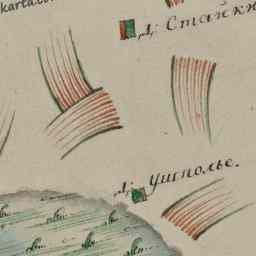 karta.co
д: Стайки
д: Ушполье.